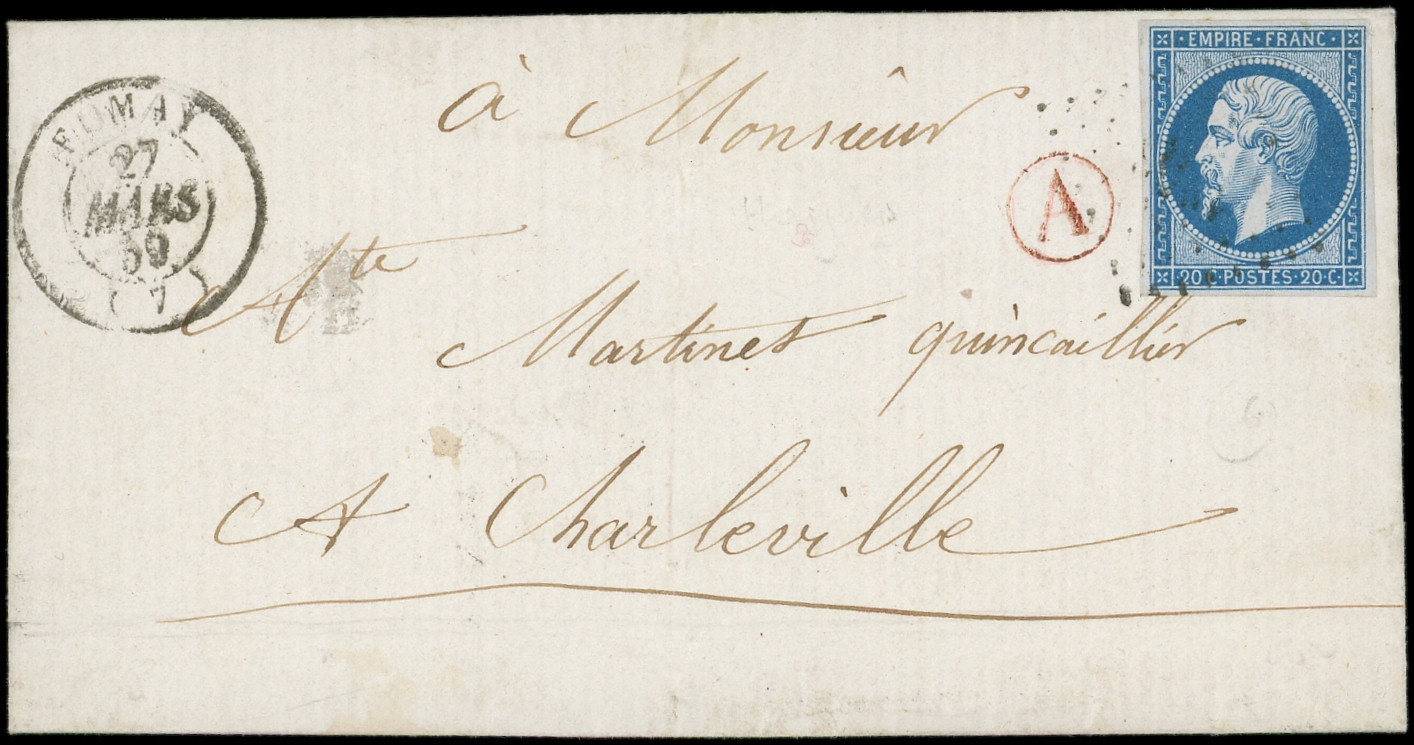 EMPIRE · FRANC ·
FUMAY
27
MARS
59
( 7 )
à Monsieur
A
20 C · POSTES · 20 C ·
Ate
Martinet quincaillier
A Charleville